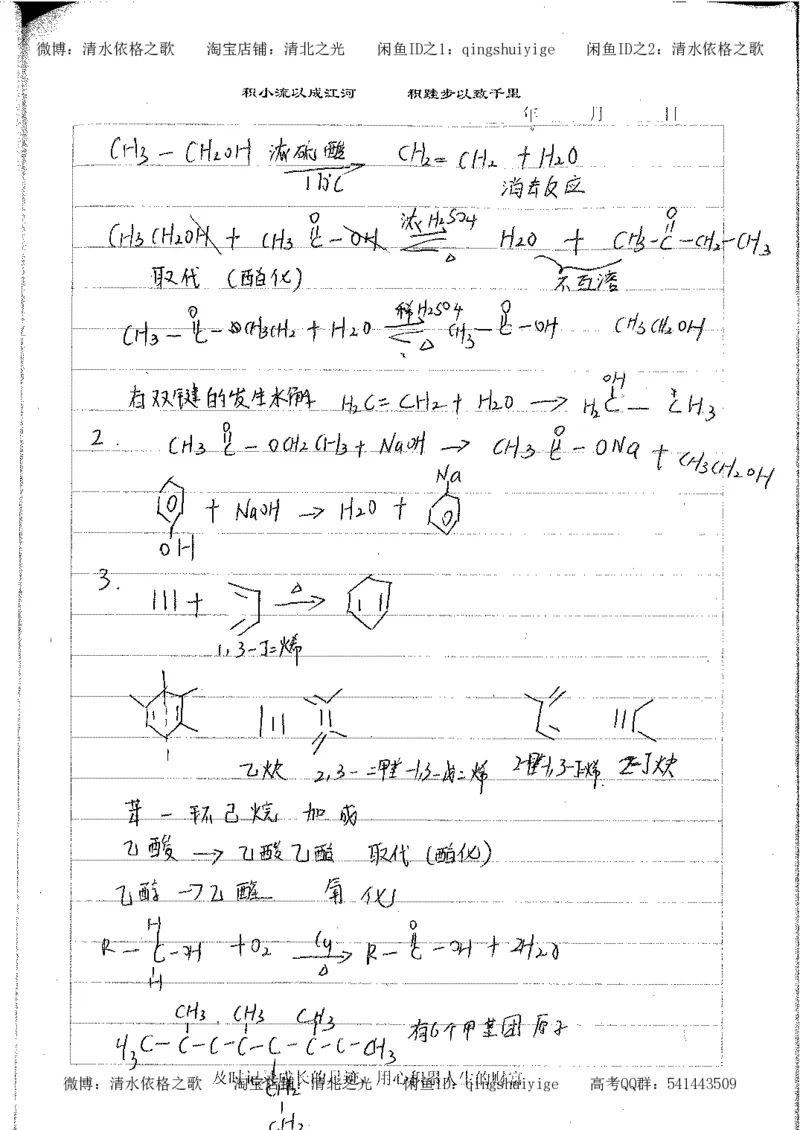 微博：清水依格之歌 淘宝店铺：清北之光 闲鱼ID之1：qingshuiyige 闲鱼ID之2：清水依格之歌
积小流以成江河 积跬步以致千里
年 月 日
CH3 — CH2OH 浓硫酸 CH2 = CH2 + H2O
消去反应
CH3CH2OH + CH3 C(=O) — OH 浓H2SO4 △ H2O + CH3 — C(=O) — CH2 — CH3
取代 (酯化) 不互溶
CH3 — C(=O) — OCH3CH2 + H2O 稀H2SO4 △ CH3 — C(=O) — OH CH3CH2OH
有双键的发生水解 H2C = CH2 + H2O → H2C(OH) — CH3
2. CH3 C(=O) — OCH2CH3 + NaOH → CH3 C(=O) — ONa + CH3CH2OH
Na
+ NaOH → H2O +
OH
3. + △ →
1,3-丁二烯
乙炔 2,3-二甲基-1,3-二烯 1,3-丁烯 2-丁炔
苯 — 环己烷 加成
乙酸 → 乙酸乙酯 取代 (酯化)
乙醇 → 乙醛 氧化
H
R — C — OH + O2 Cu △ R — C(=O) — OH + 2H2O
H
CH3 CH3 CH3
H3C — C — C — C — C — C — C — CH3 有6个甲基团原子
及时记录成长的足迹 用心积累人生的财富
微博：清水依格之歌 淘宝店铺：清北之光 闲鱼ID之1：qingshuiyige 高考QQ群：541443509
CH2
CH2